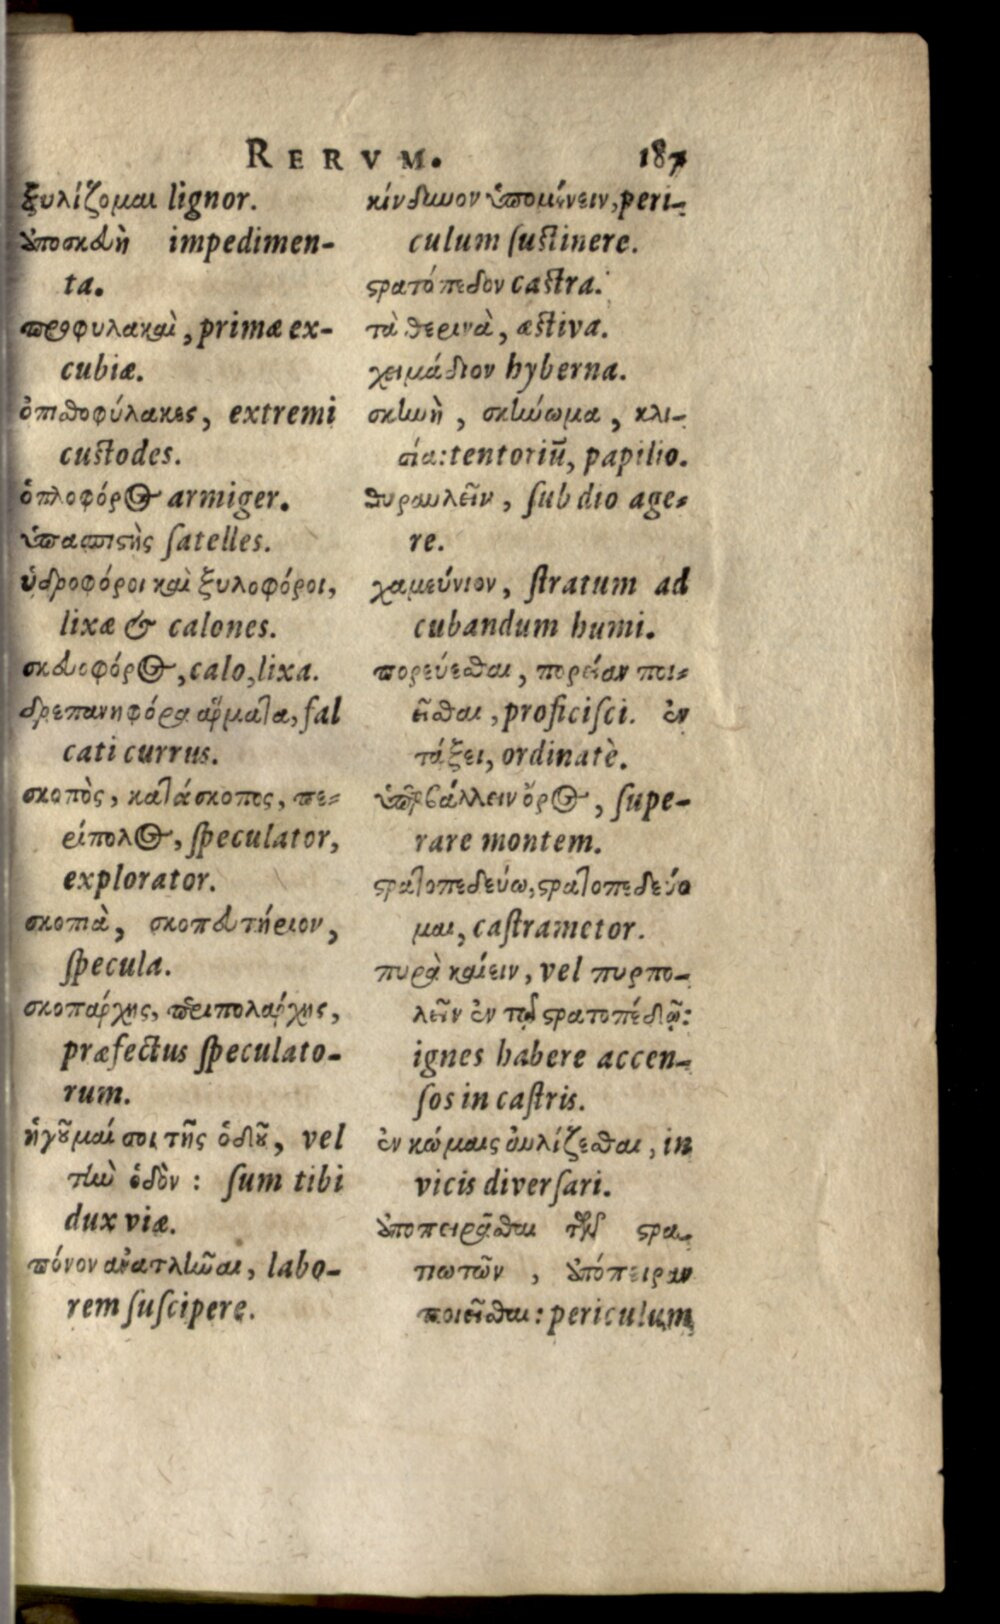 RERVM. 187
ξυλίζομαι lignor.
ὑποσκευὴ impedimen-
ta.
προφυλακαὶ, primæ ex-
cubiæ.
ὀπισθοφύλακες, extremi
custodes.
ὁπλοφόρος armiger.
ὑπασπιστὴς satelles.
ὑδροφόροι καὶ ξυλοφόροι,
lixæ & calones.
σκευοφόρος, calo, lixa.
δρεπανηφόρα ἅρματα, fal
cati currus.
σκοπὸς, κατάσκοπος, πε-
ρίπολος, speculator,
explorator.
σκοπιὰ, σκοπευτήριον,
specula.
σκοπάρχης, περιπολάρχης,
præfectus speculato-
rum.
ἡγοῦμαί σοι τῆς ὁδοῦ, vel
τὴν ὁδὸν: sum tibi
dux viæ.
πόνον ἀνατλῆναι, labo-
rem suscipere.
κίνδυνον ὑπομένειν, peri-
culum sustinere.
στρατόπεδον castra.
τὰ θερινὰ, æstiva.
χειμάδιον hyberna.
σκηνὴ, σκήνωμα, κλι-
σία: tentoriū, papilio.
θυραυλεῖν, sub dio age-
re.
χαμεύνιον, stratum ad
cubandum humi.
πορεύεσθαι, πορείαν ποι-
εῖσθαι, proficisci. ἐν
τάξει, ordinatè.
ὑπερβάλλειν ὄρος, supe-
rare montem.
στρατοπεδεύω, στρατοπεδεύο
μαι, castrametor.
πυρὰ καίειν, vel πυρπο-
λεῖν ἐν τῷ στρατοπέδῳ:
ignes habere accen-
sos in castris.
ἐν κώμαις αὐλίζεσθαι, in
vicis diversari.
ὑποπειρᾶσθαι τῶν στρα-
τιωτῶν, ὑπόπειραν
ποιεῖσθαι: periculum